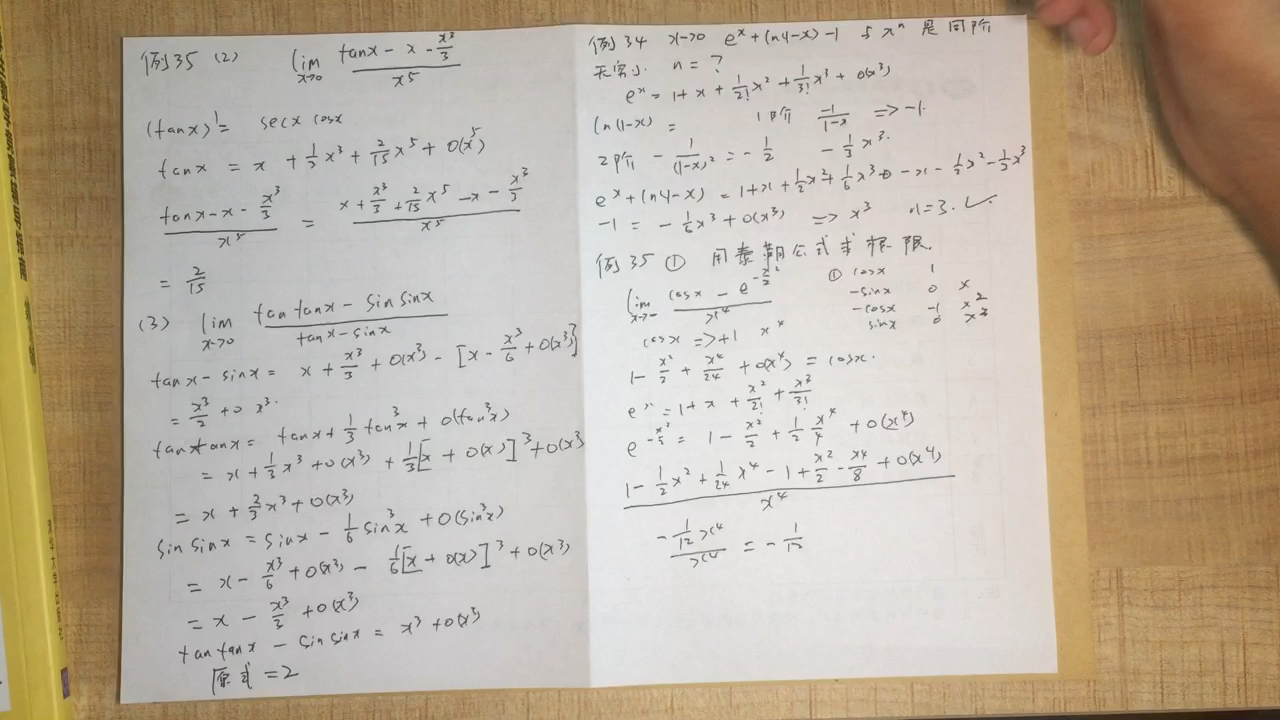 例35 (2) lim x→0 (tanx - x - x³/3) / x⁵
(tanx)' = secx cosx
tanx = x + 1/3 x³ + 2/15 x⁵ + o(x⁵)
(tanx - x - x³/3) / x⁵ = (x + x³/3 + 2/15 x⁵ - x - x³/3) / x⁵
= 2/15
(3) lim x→0 (tan tanx - sin sinx) / (tanx - sinx)
tanx - sinx = x + x³/3 + o(x³) - [x - x³/6 + o(x³)]
= x³/2 + o x³.
tan tanx = tanx + 1/3 tan³x + o(tan³x)
= x + 1/3 x³ + o(x³) + 1/3[x + o(x)]³ + o(x³)
= x + 2/3 x³ + o(x³)
sin sinx = sinx - 1/6 sin³x + o(sin³x)
= x - x³/6 + o(x³) - 1/6[x + o(x)]³ + o(x³)
= x - x³/3 + o(x³)
tan tanx - sin sinx = x³ + o(x³)
原式 = 2
例34 x→0 eˣ + ln(1-x) - 1 与 xⁿ 是同阶
无穷小. n = ?
eˣ = 1 + x + 1/2! x² + 1/3! x³ + o(x³)
ln(1-x) = 1阶 -1/(1-x) => -1.
2阶 - 1/(1-x)² = - 1/2 - 1/3 x³.
eˣ + ln(1-x) = 1 + x + 1/2 x² + 1/6 x³ - x - 1/2 x² - 1/3 x³
-1 = - 1/6 x³ + o(x³) => x³ n=3. ✓
例35 ① 用泰朝公式求极限.
lim x→ (cosx - e^(-x²/2)) / x⁴
① cosx 1
-sinx 0 x
-cosx -1 x²
sinx 0 x³
cosx => +1 x⁴
1 - x²/2 + x⁴/24 + o(x⁴) = cosx.
eˣ = 1 + x + x²/2! + x³/3!
e^(-x²/2) = 1 - x²/2 + 1/2 x⁴/4 + o(x⁴)
(1 - 1/2 x² + 1/24 x⁴ - 1 + x²/2 - x⁴/8 + o(x⁴)) / x⁴
(-1/12 x⁴) / x⁴ = - 1/12